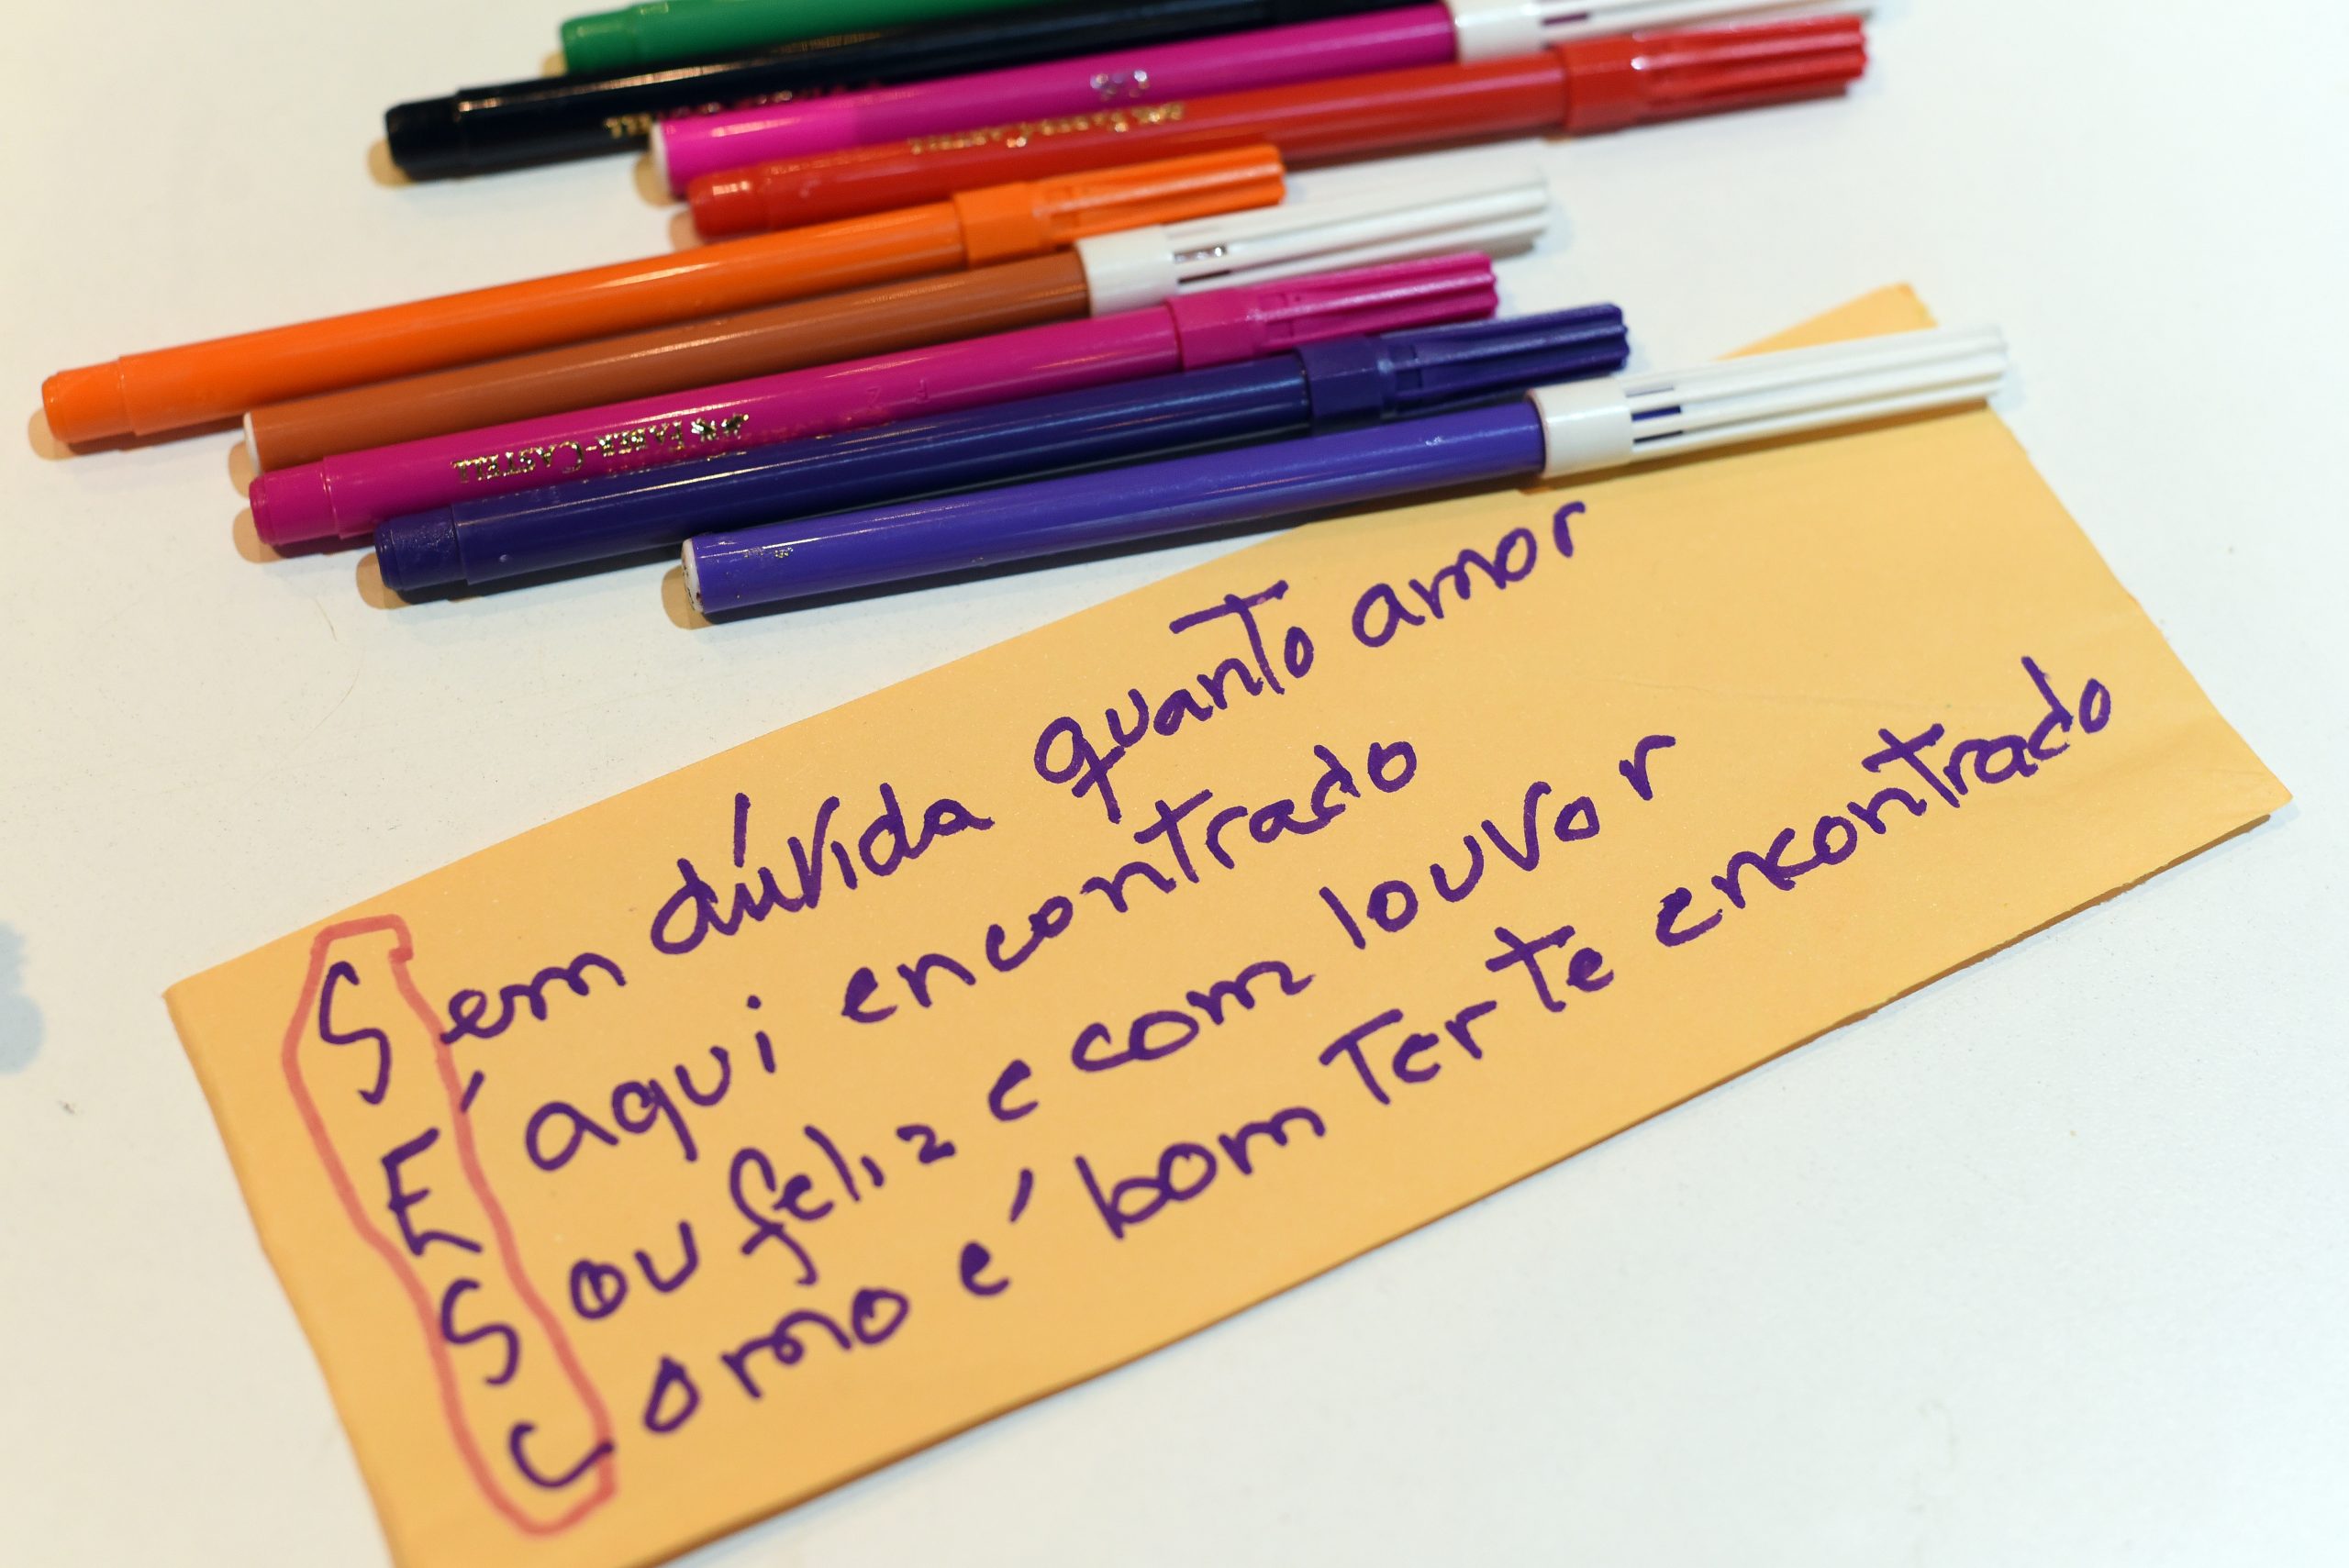 FABER-CASTELL
FABER-CASTELL
Sem dúvida quanto amor
É aqui encontrado
Sou feliz e com louvor
Como é bom Ter te encontrado